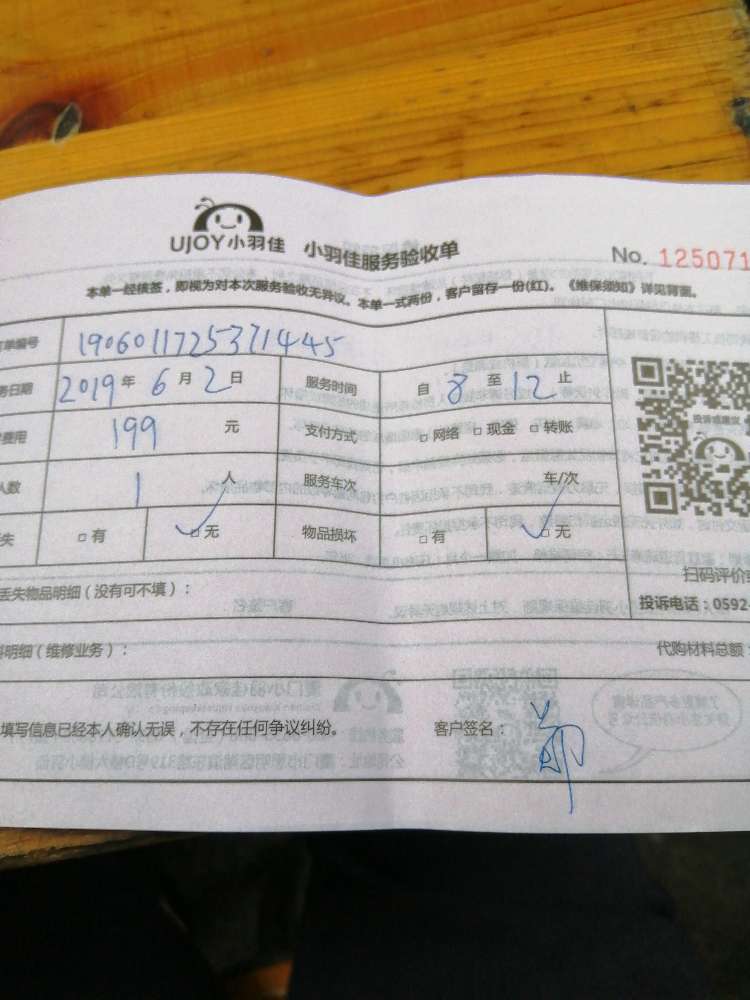 UJOY小羽佳 小羽佳服务验收单
No. 125071
本单一经核签，即视为对本次服务验收无异议。本单一式两份，客户留存一份(红)。《维保须知》详见背面。
单编号 1906011725371445
务日期 2019年6月2日 服务时间 自8至12止
费用 199 元 支付方式 □网络 □现金 □转账
人数 1 人 服务车次 车/次
失 □有 ✓□无 物品损坏 □有 ✓□无
投诉或建议
扫码评价
丢失物品明细（没有可不填）：
投诉电话：0592
料明细（维修业务）：
代购材料总额：
填写信息已经本人确认无误，不存在任何争议纠纷。 客户签名：